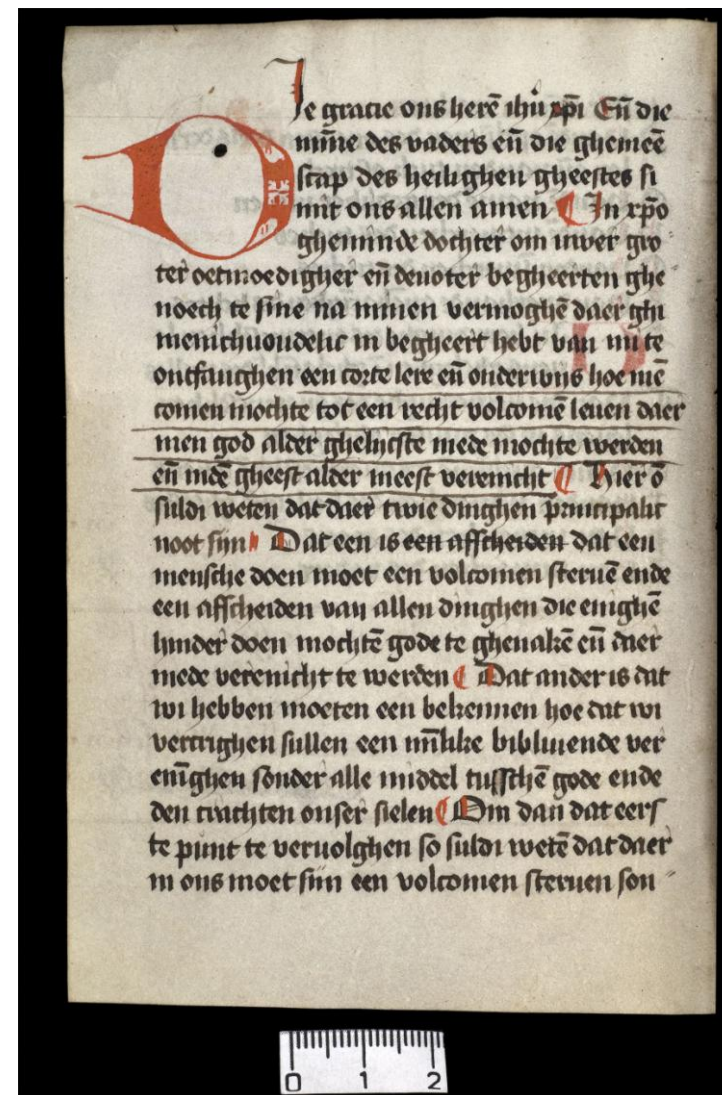 DIe gracie ons herē ihū xp̄i Eñ die
mīne des vaders eñ die ghemeē
scap des heilighen gheestes si
mit ons allen amen ¶ In xp̄o
gheminde dochter om uwer gro
ter oetmoedigher eñ deuoter begheerten ghe
noech te sine na minen vermoghē daer ghi
menichuoudelic in begheert hebt van mi te
ontfanghen een corte lere eñ onderwijs hoe mē
comen mochte tot een recht volcomē leuen daer
men god alder ghelijcste mede mochte werden
eñ indē gheest alder meest verenicht ¶ Hier ō
suldi weten dat daer twie dinghen principalic
noot sijn Dat een is een affscheiden dat een
mensche doen moet een volcomen steruē ende
een affscheiden van allen dinghen die enighē
hinder doen mochtē gode te ghenakē eñ daer
mede verenicht te werden ¶ Dat ander is dat
wi hebben moeten een bekennen hoe dat wi
vercrighen sullen een īnlike bibliuende ver
enīghen sonder alle middel tusschē gode ende
den crachten onser sielen ¶ Om dan dat eers
te punt te veruolghen so suldi wetē dat daer
in ons moet sijn een volcomen steruen son
0 1 2